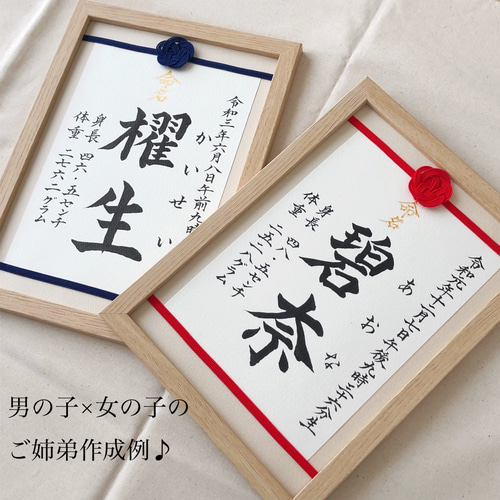 命名
令和三年六月八日午前九時
かいせい
櫂生
身長 四六・五センチ
体重 二七六二グラム
命名
令和元年十一月七日午後九時三十六分生
あおな
碧奈
身長 四八・五センチ
体重 二五二八グラム
男の子×女の子の
ご姉弟作成例♪